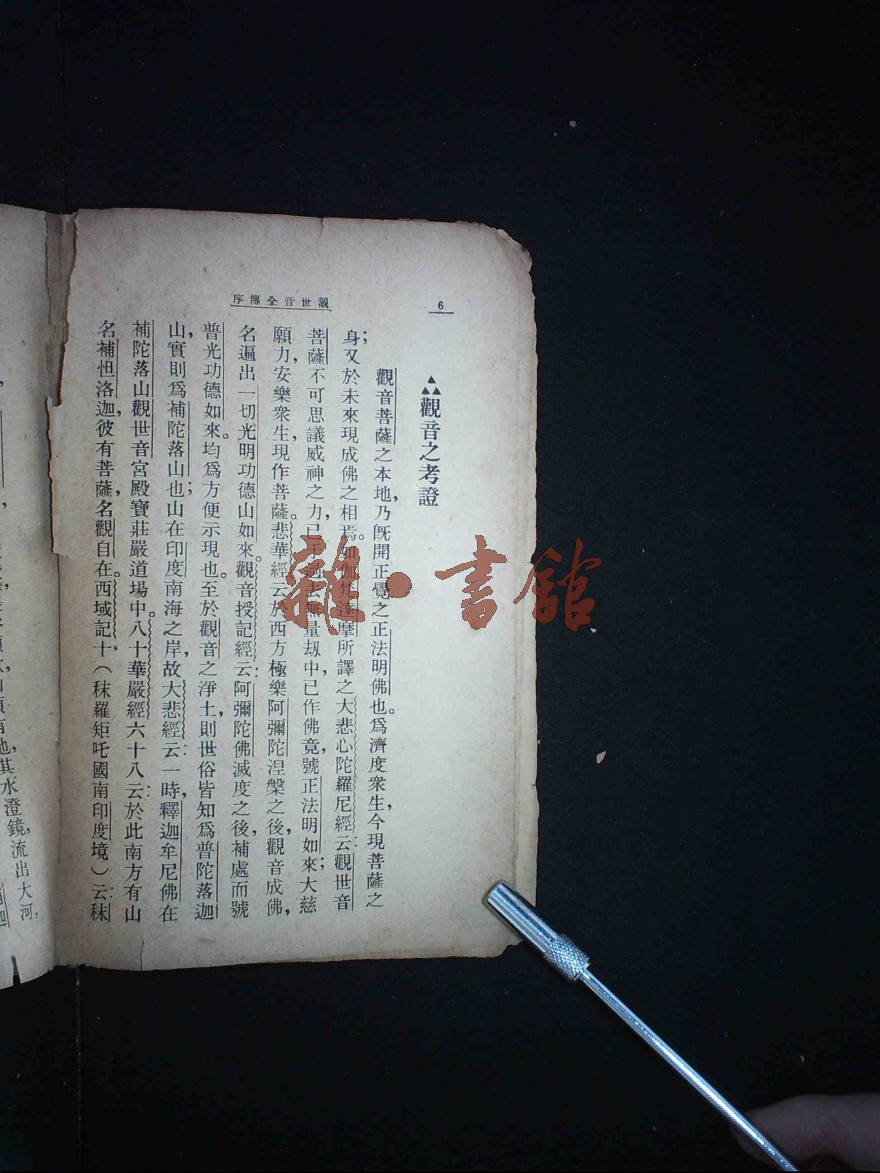 觀世音全傳序
6
觀音之考證
觀音菩薩之本地，乃旣開正覺之正法明佛也。爲濟度衆生，今現菩薩之
身；又於未來現成佛之相焉。如伽梵達摩所譯之大悲心陀羅尼經云：觀世音
菩薩不可思議威神之力，已于過去無量刼中，已作佛竟，號正法明如來；大慈
願力，安樂衆生，現作菩薩。悲華經云：於西方極樂阿彌陀涅槃之後，觀音成佛，
名遍出一切光明功德山如來。觀音授記經云：阿彌陀佛滅度之後，補處而號
普光功德如來。均爲方便示現也。至於觀音之淨土，則世俗皆知爲普陀落迦
山，實則爲補陀落山也；山在印度南海之岸，故大悲經云：一時釋迦牟尼佛在
補陀落山觀世音宮殿寶莊嚴道場中。八十華嚴經六十八云：於此南方有山
名補怛洛迦，彼有菩薩，名觀自在。西域記十（秣羅矩吒國南印度境）云：秣
其水澄鏡，流出大河，
雜·書館